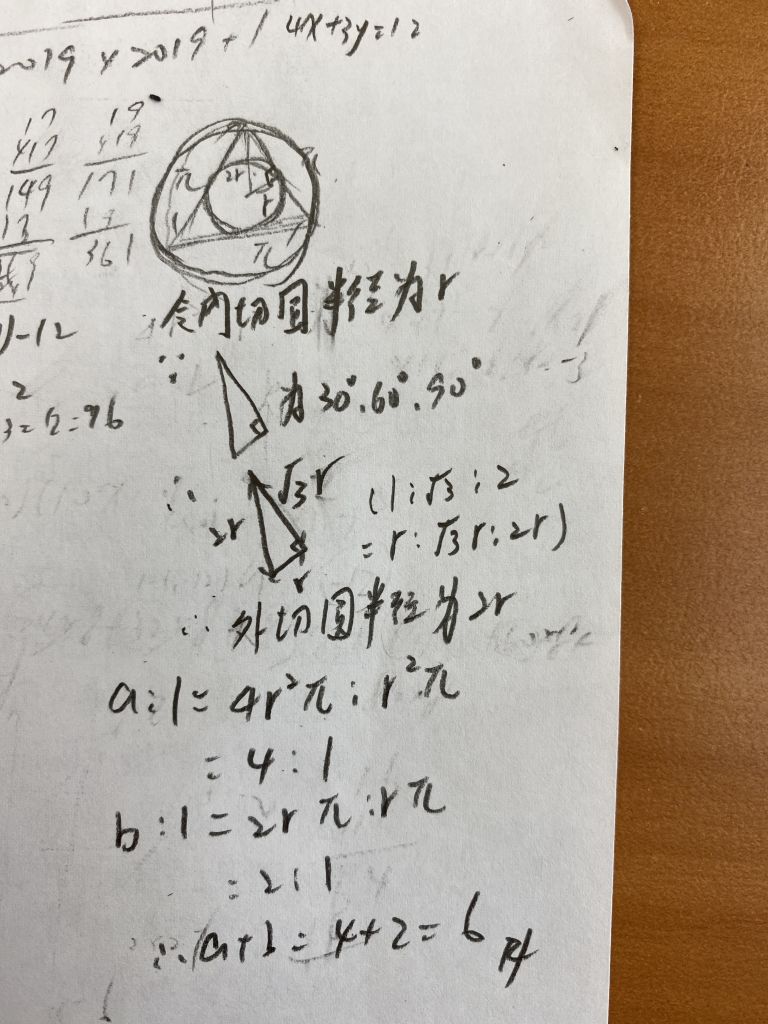 2019 × 2019 + 1 4x+3y=12
17 19
×17 ×19
149 171
13 19
361
1)-12
2
3=2=96
π π
2r r
r
π
令內切圓半徑為r
∵
為30°.60°.90°
∴ √3r (1:√3:2
2r = r:√3r:2r)
r
∴ 外切圓半徑為2r
a:1=4r²π:r²π
=4:1
b:1=2rπ:rπ
=2:1
∴a+b=4+2=6